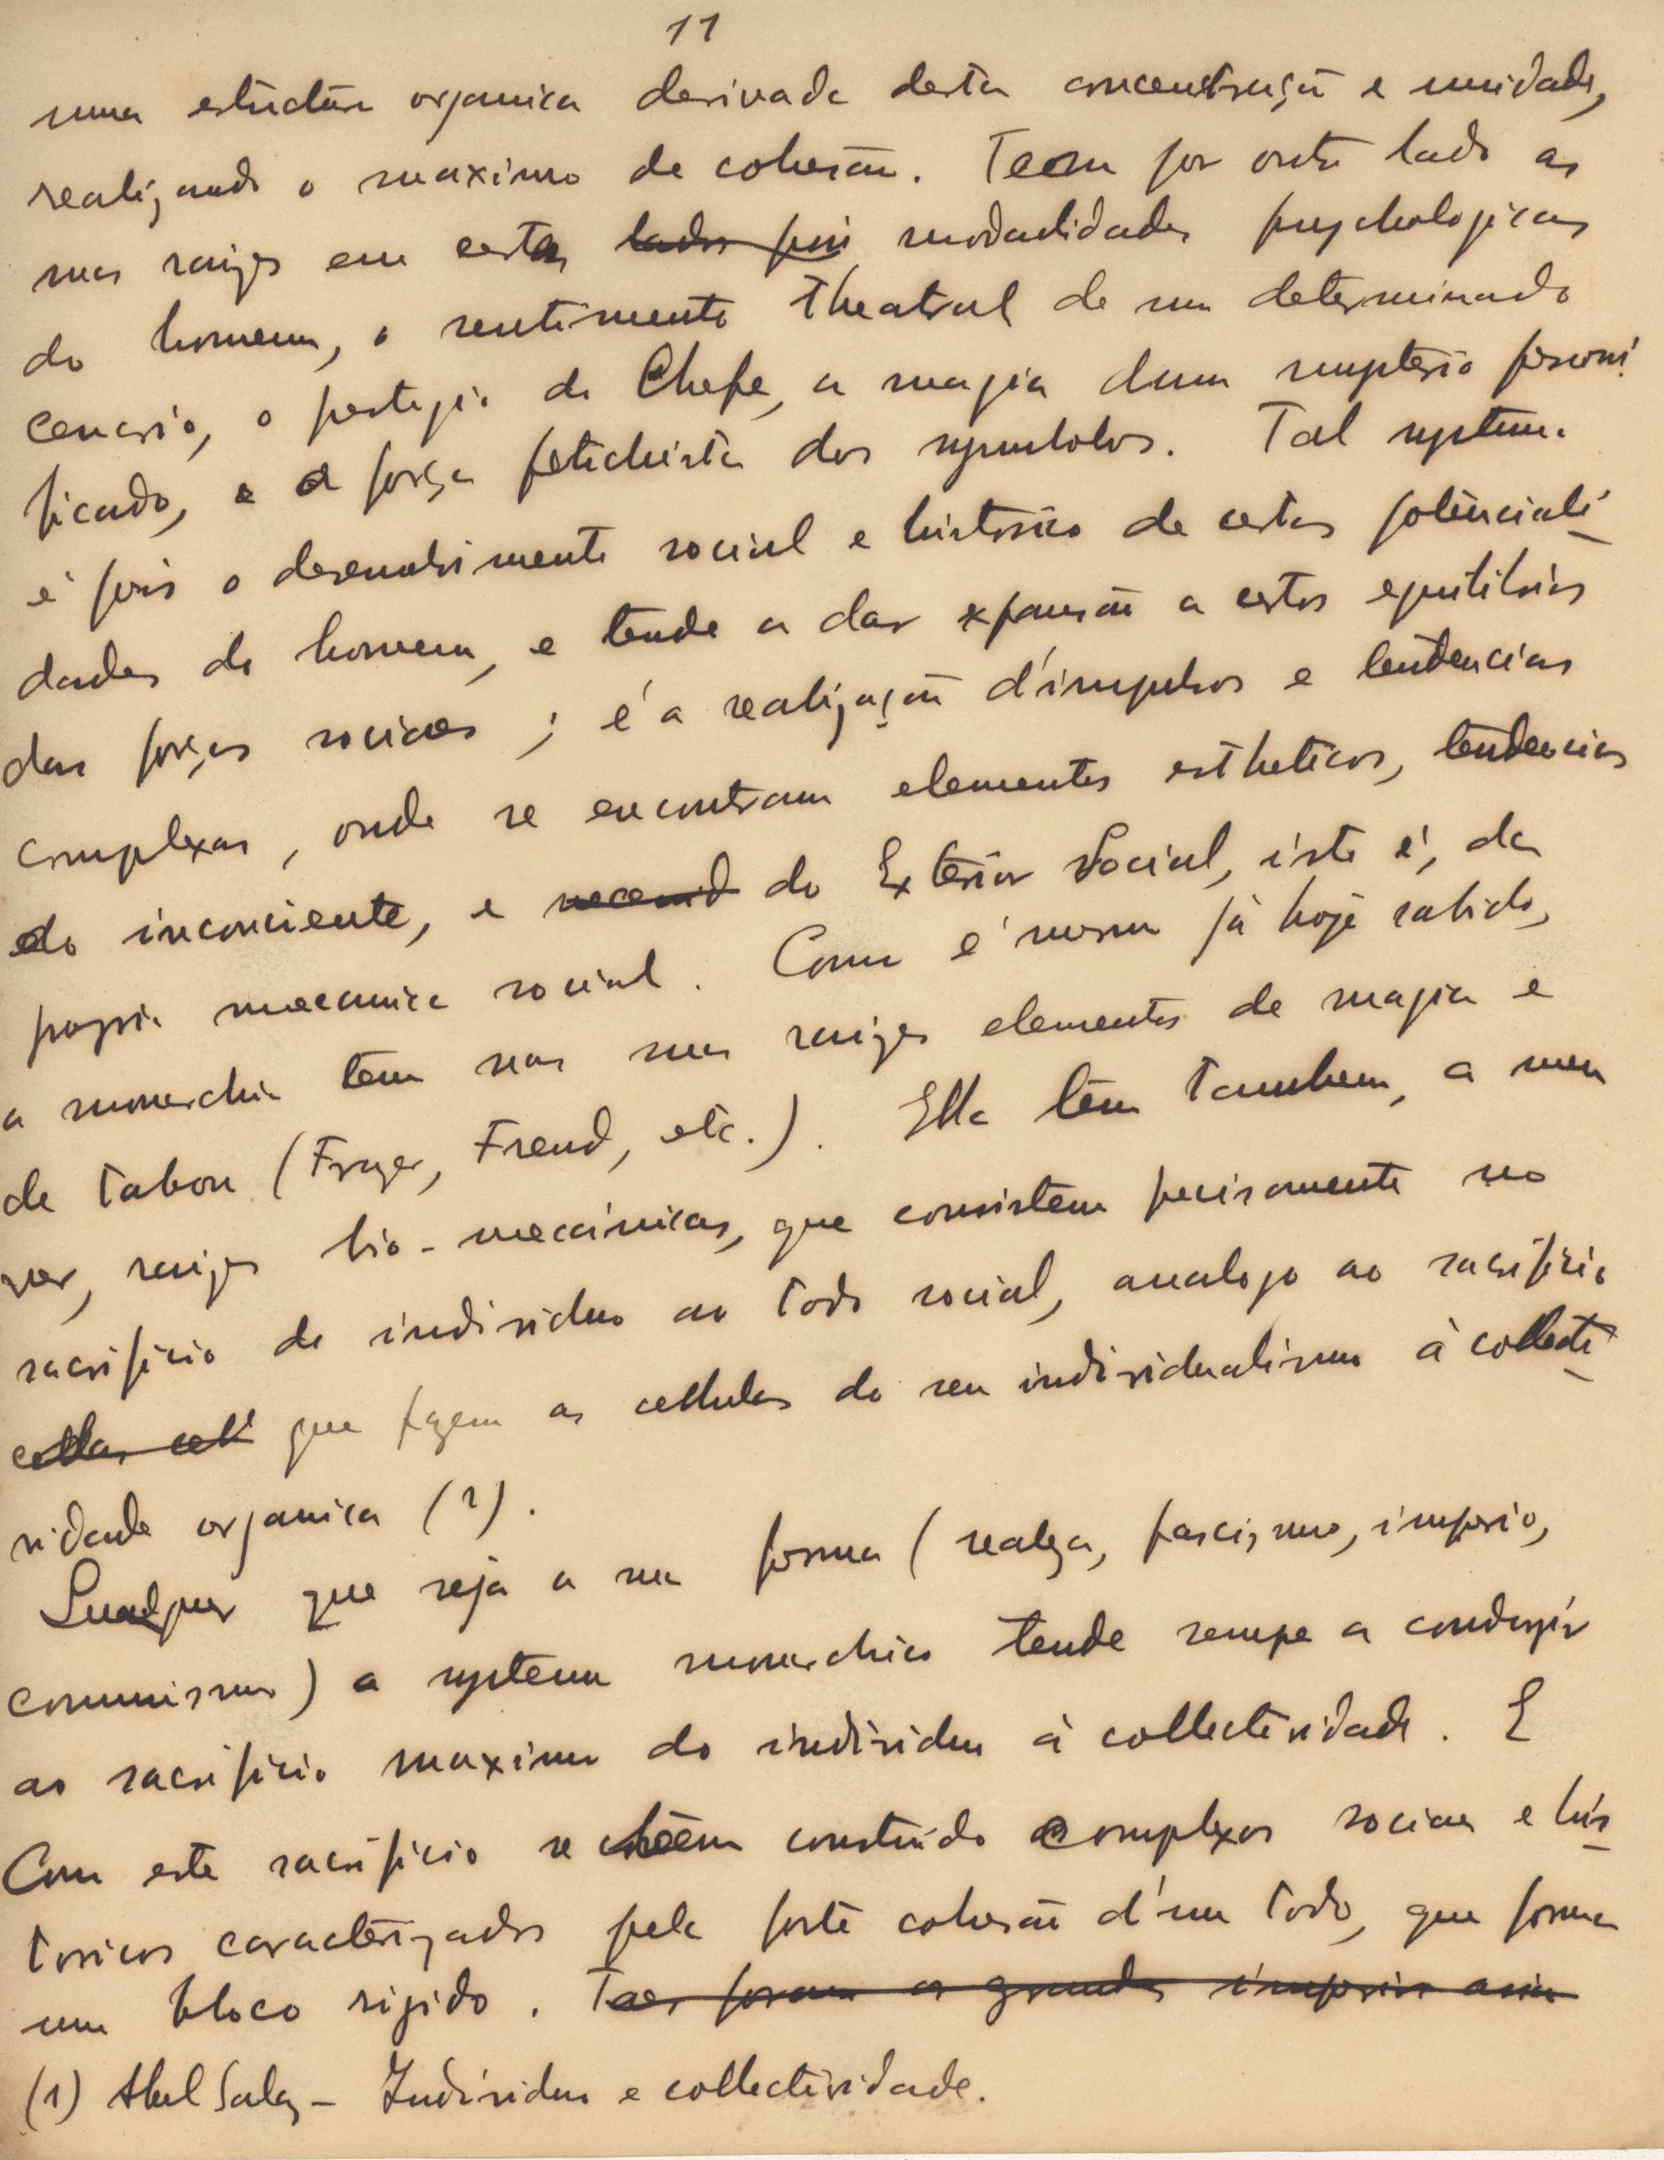 11
uma estructura organica derivada desta concentração e unidade,
realizando o maximo de cohesão. Teem por outro lado as
suas raizes em certas lados psi modalidades psychologicas
do homem, o sentimento theatral de um determinado
cenario, o prestigio do Chefe, a magia dum mysterio personi-
ficado, e a força fetichista dos symbolos. Tal systema
é pois o desenvolvimento social e historico de certas potenciali-
dades do homem, e tende a dar expansão a certos equilibrios
das forças sociaes ; é a realização d'impulsos e tendencias
complexas, onde se encontram elementos estheticos, tendencias
do inconciente, e mecanid do Exterior Social, isto é, da
propria mecanica social. Como é mesmo já hoje sabido,
a monarchia tem nas suas raizes elementos de magia e
de tabou (Frazer, Freud, etc.). Ella têm tambem, a meu
ver, raizes bio-mecánicas, que consistem precisamente no
sacrificio do individuo ao todo social, analogo ao sacrificio
cellas cell que fazem as cellulas do seu individualismo à collecti-
vidade organica (1).
Qualquer que seja a sua forma (realeza, fascismo, imperio,
communismo) o systema monarchico tende sempre a conduzir
ao sacrificio maximo do individuo á collectividade. E
Com este sacrificio se têem construido complexos sociaes e his-
toricos caracterizados pela forte cohesão d'um todo, que forma
um bloco rigido. Taes foram os grandes imperios asia
(1) Abel Salaz – Individuo e collectividade.